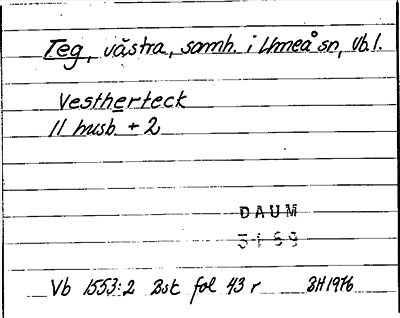 Teg, västra, samh. i Umeå sn, Vb.l.
Vestherteck
11 husb. + 2
DAUM
3169
Vb 1553:2 Bst fol 43 r BH1976